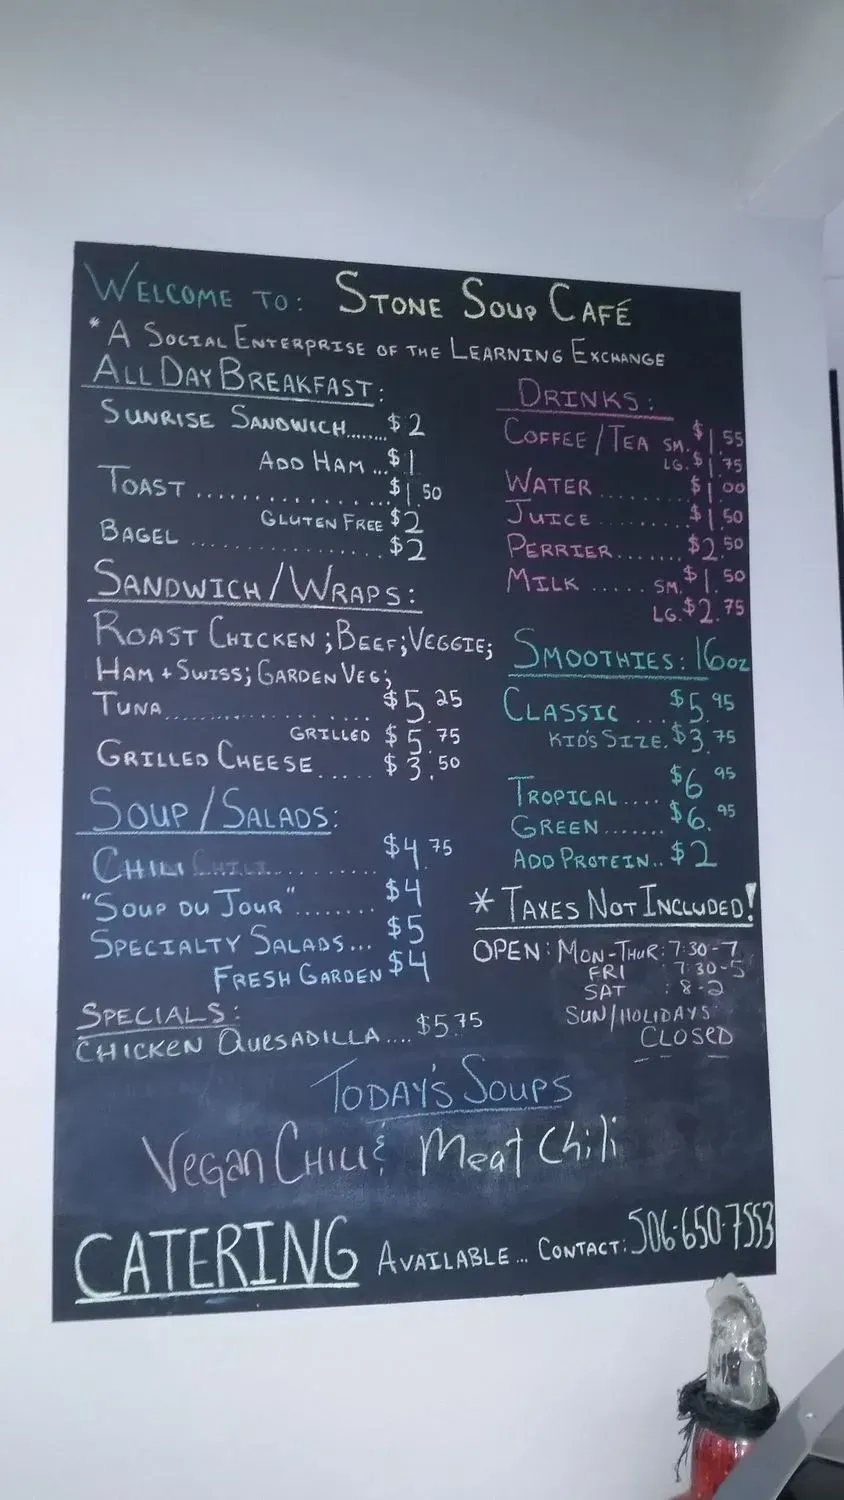 WELCOME TO: STONE SOUP CAFÉ
*A SOCIAL ENTERPRISE OF THE LEARNING EXCHANGE
ALL DAY BREAKFAST:
SUNRISE SANDWICH....... $2
ADD HAM ... $1
TOAST .................. $1.50
GLUTEN FREE $2
BAGEL .................. $2
SANDWICH/WRAPS:
ROAST CHICKEN; BEEF; VEGGIE;
HAM + SWISS; GARDEN VEG;
TUNA.................. $5.25
GRILLED $5.75
GRILLED CHEESE ..... $3.50
SOUP/SALADS:
CHILI CHILI........... $4.75
"SOUP DU JOUR"........ $4
SPECIALTY SALADS... $5
FRESH GARDEN $4
SPECIALS:
CHICKEN QUESADILLA .... $5.75
DRINKS:
COFFEE/TEA SM. $1.55
LG. $1.75
WATER ......... $1.00
JUICE ......... $1.50
PERRIER....... $2.50
MILK ...... SM. $1.50
LG. $2.75
SMOOTHIES: 16oz
CLASSIC .... $5.95
KID'S SIZE. $3.75
TROPICAL.... $6.95
GREEN....... $6.95
ADD PROTEIN.. $2
*TAXES NOT INCLUDED!
OPEN: MON-THUR: 7:30-7
FRI : 7:30-5
SAT : 8-2
SUN/HOLIDAYS
CLOSED
TODAY'S SOUPS
Vegan CHILI & Meat Chili
CATERING AVAILABLE... CONTACT: 506-650-7553